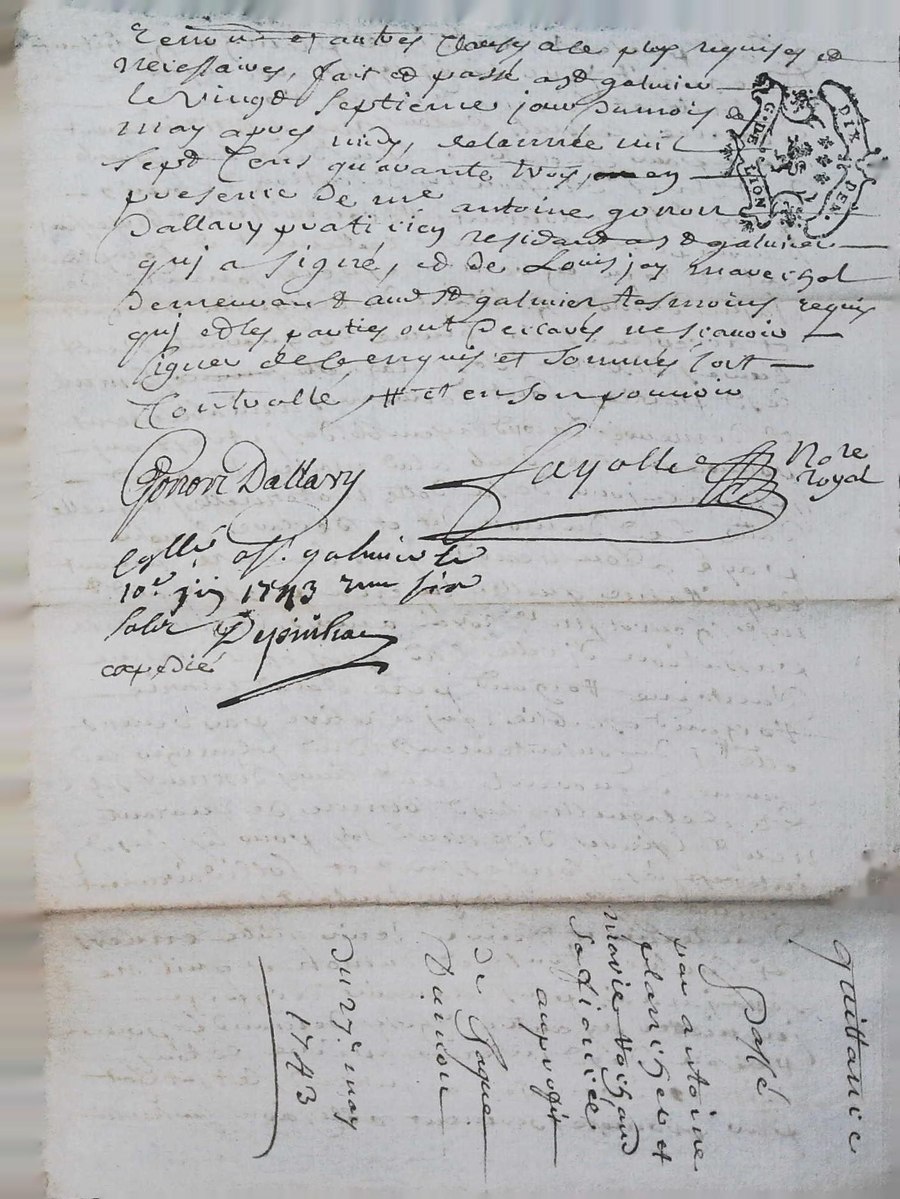 Renonc et autres clauses a ce plus requises et
necessaires, fait et passé a st galmier
le vingt septieme jour du mois de
may apres midy, de lannée mil
sept cens quarante trois, en
presence de me antoine gonon
Dallary praticien residant a st galmier
qui a signé, et de Louis jay marechal
demeurant aud st galmier tesmoins requis
qui et les parties ont declarés ne scavoir
signer de ce enquis et sommés soit
Controllé # et en son pouvoir
G. DE LION
DIX DEN
Gonon Dallary
fayolle Nore
royal
Collé a st. galmier le
10e juin 1743
solz
expedié
quittance
passé
par antoine
planchet et
marie
sa fiancée
au profit
de Jaque
Dumon
Du 27e may
1743